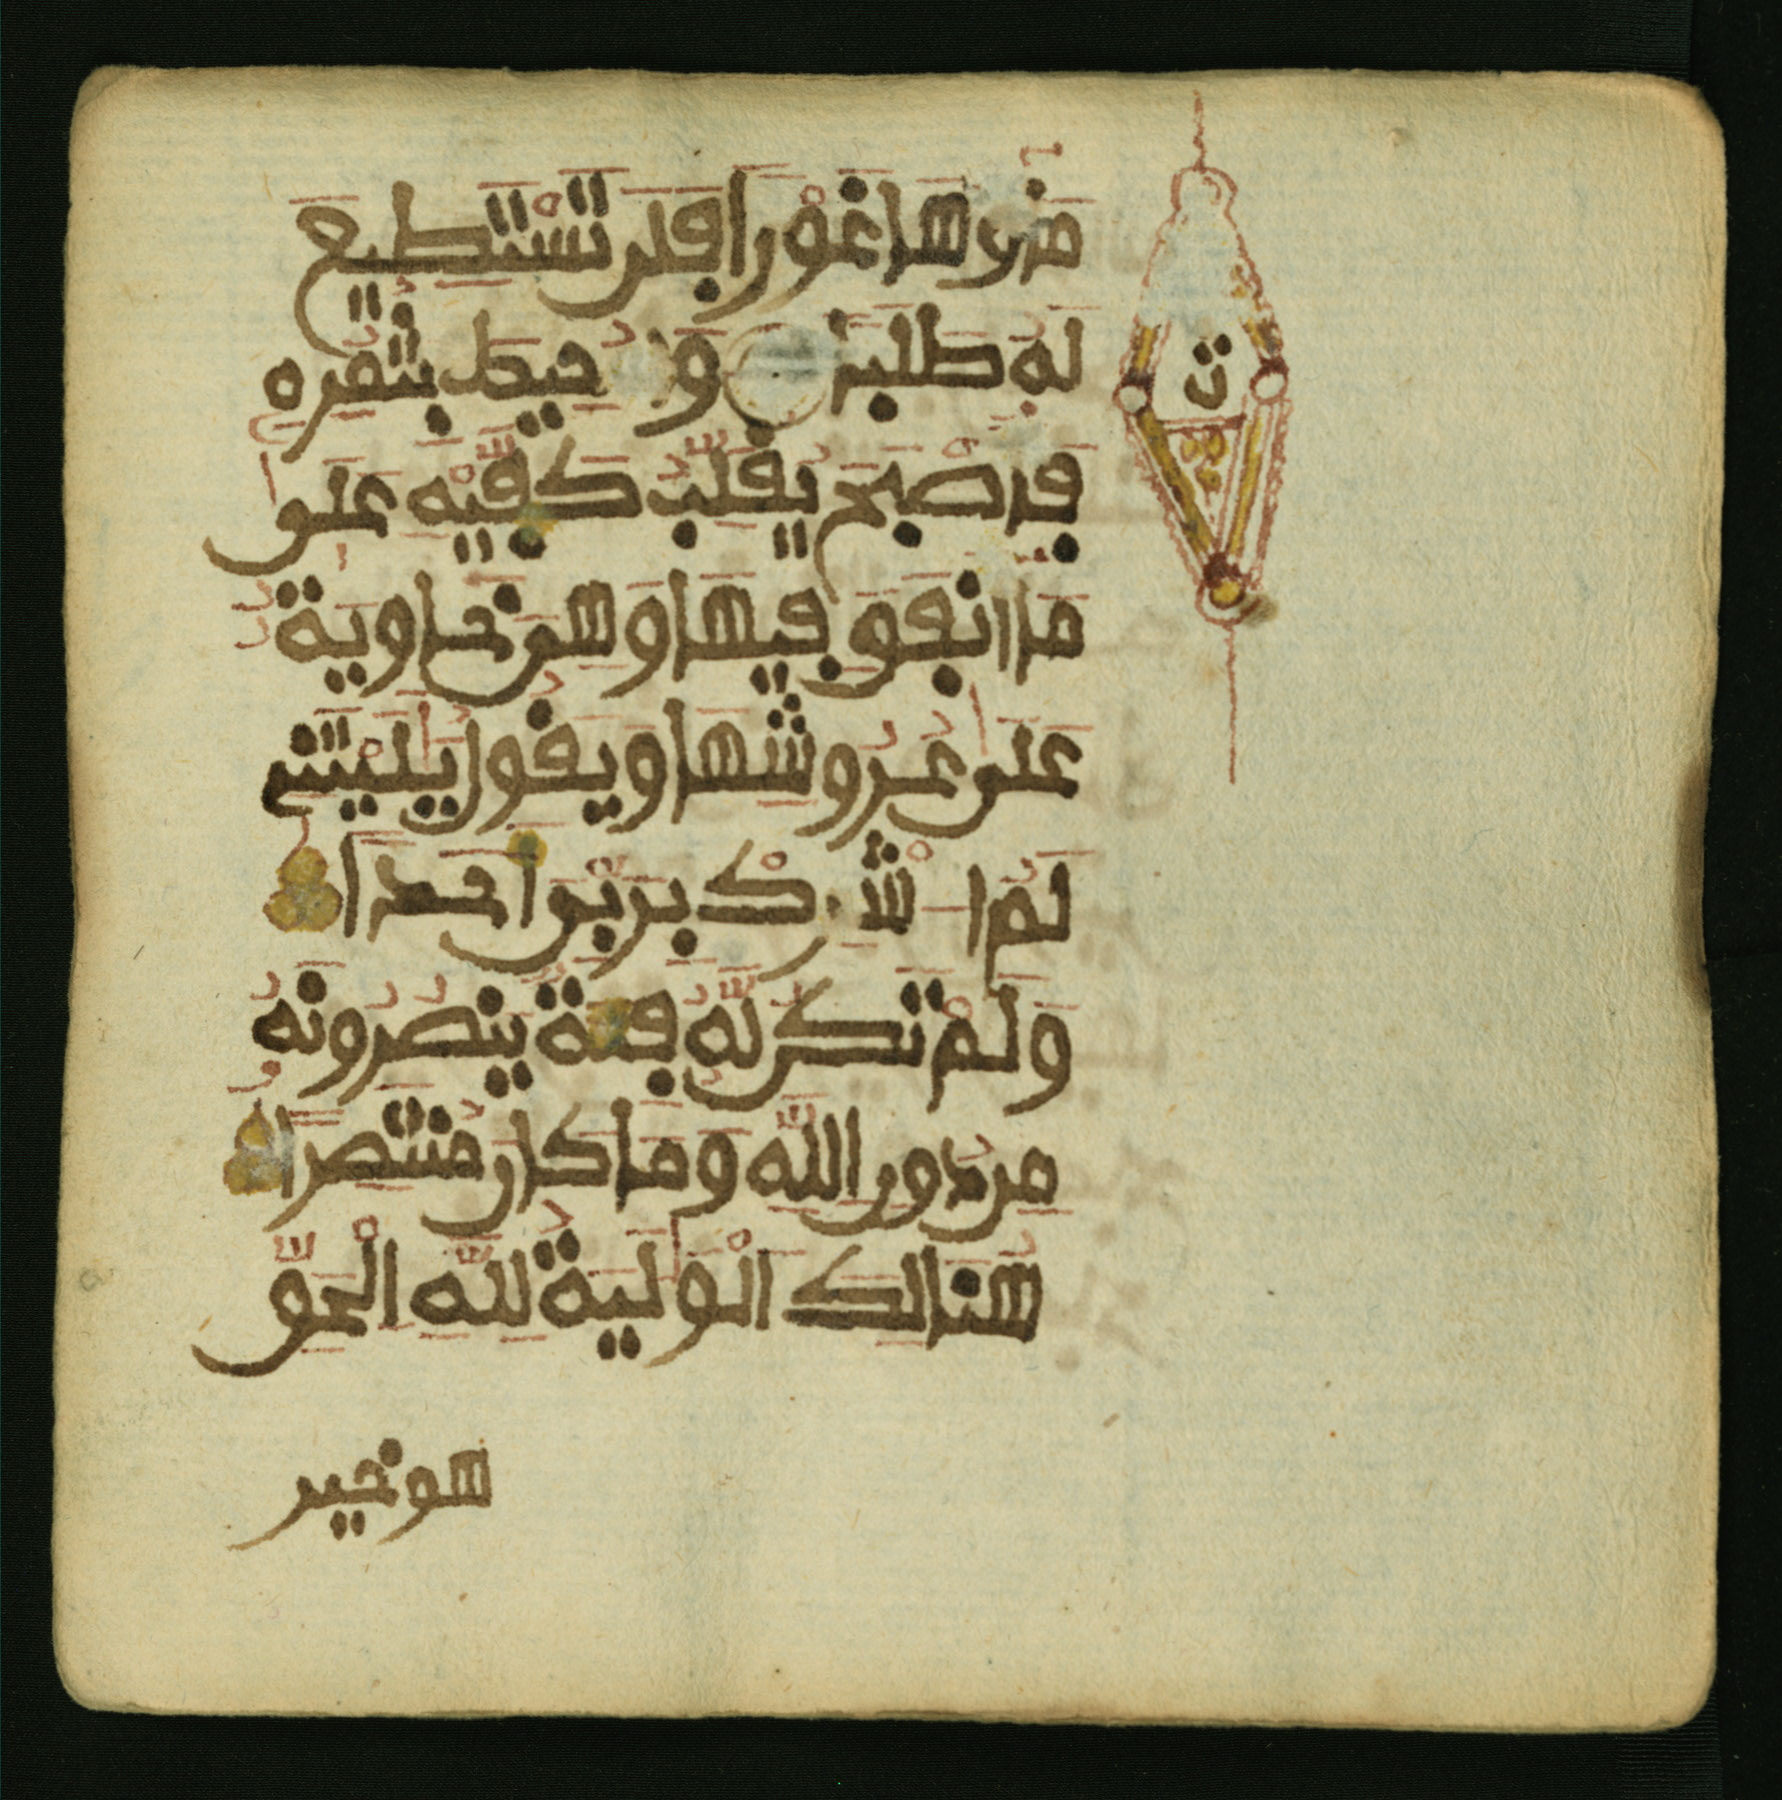 ماؤها غورا فلن تستطيع
له طلبا واحيط بثمره
فاصبح يقلب كفيه على
ما انفق فيها وهي خاوية
على عروشها ويقول يليتني
لم اشرك بربي احدا
ولم تكن له فئة ينصرونه
من دون الله وما كان منتصرا
هنالك الولية لله الحق
هو خير